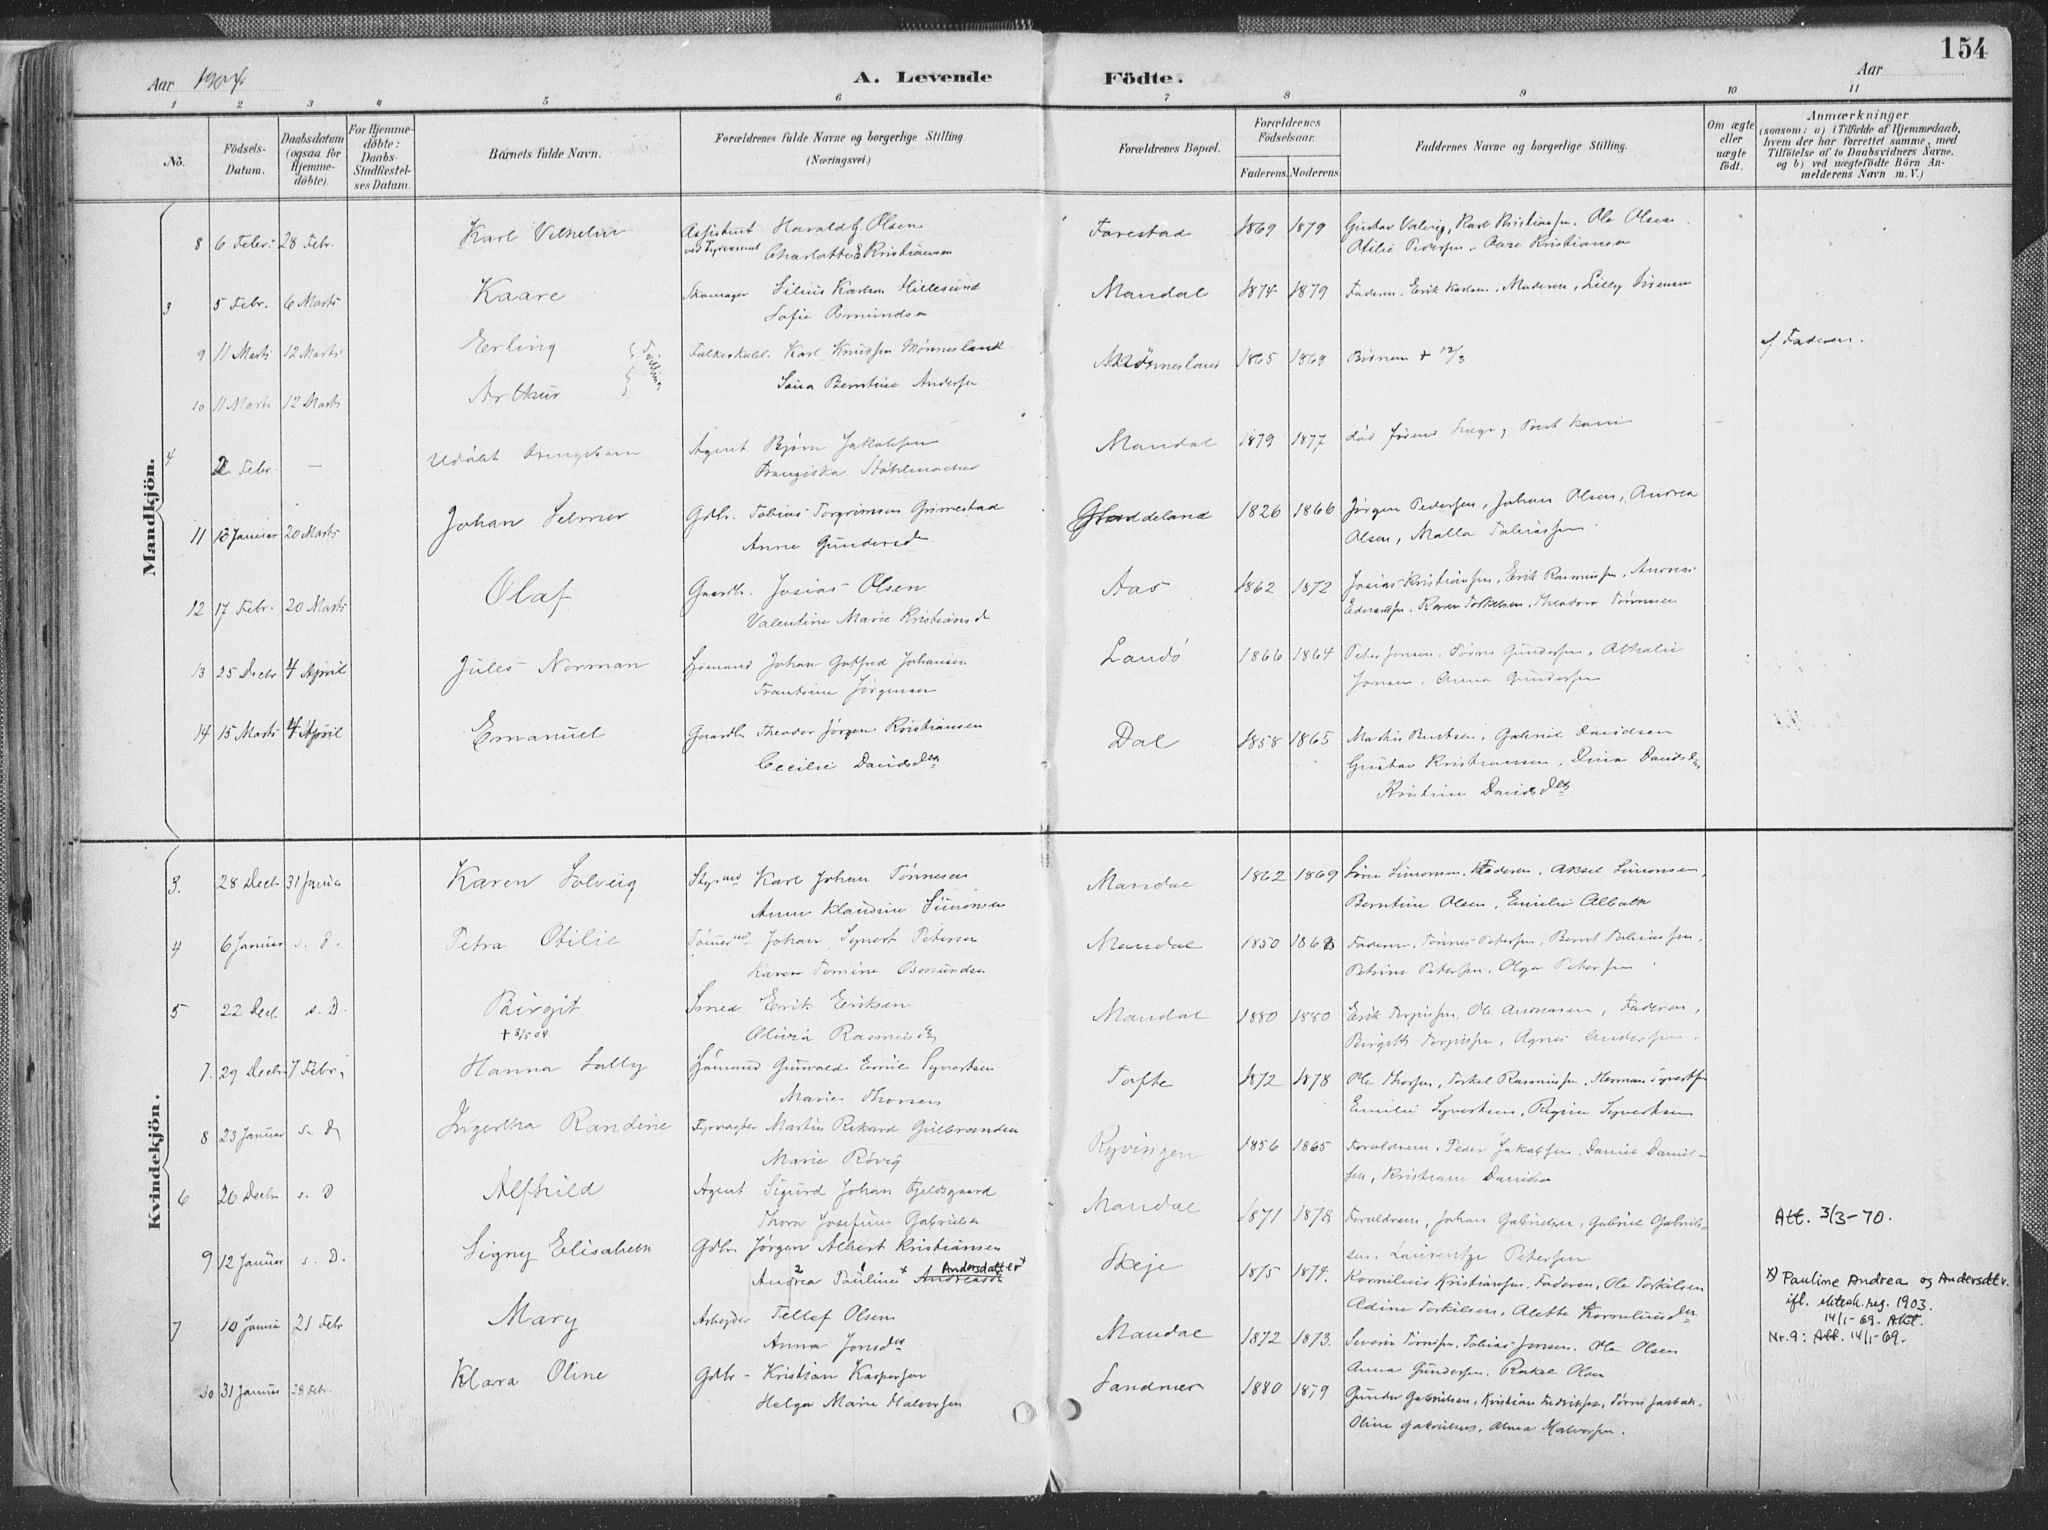 154
Aar 1904. A. Levende Födte. Aar
1 2 3 4 5 6 7 8 9 10 11
No.
Födsels-Datum.
Daabsdatum (ogsaa for Hjemme-döbte).
For Hjemme-döbte: Daabs-Stadfestel-ses Datum.
Barnets fulde Navn.
Forældrenes fulde Navne og borgerlige Stilling.
(Næringsvei.)
Forældrenes Bopæl.
Forældrenes Födselsaar.
Faderens. Moderens.
Faddernes Navne og borgerlige Stilling.
Om ægte eller uægte födt.
Anmærkninger
(saasom: a) i Tilfælde af Hjemmedaab,
hvem der har forrettet samme, med
Tilföielse af to Daabsvidners Navne.
og b) ved uægtefödte Börn An-
melderens Navn m. V.)
Mandkjön.
8 6 Febr. 28 Febr. Karl Vilhelm Assistent Harald G. Olsen Farestad 1869 1879 Gustav Valvig, Karl Kristiansen, Ole Olsen
ved Fyrvæsenet Charlotte E Kristiansen Otilie Pedersen, Aase Kristiansen
3 5 Febr. 6 Marts Kaare Skomager Silius Karlsen Hillesund Mandal 1874 1879 Faderen, Erik Karlsen, Moderen, Lilly Sørensen
Sofie Asmundsen
9 11 Marts 12 Marts Erling Karl Knudsen Mønnesland Mønnesland 1865 1868 Børnene + 12/3 f. Faderen.
10 11 Marts 12 Marts Arthur Tvillinger Sina Berntine Andersen
4 2 Febr. — Udöbt Drengebarn Agent Bjørn Jakobsen Mandal 1879 1877 død førend Læge, Prest kom
Franziska Stahlmacher
11 18 Januar 20 Marts Johan Selmer Gdbr. Tobias Torgrimsen Grimestad 1826 1866 Jørgen Pedersen, Johan Olsen, Andrea
Anne Gundersd Olsen, Malla Tobiassen.
12 17 Febr. 20 Marts Olaf Gaardbr. Josias Olsen Aas 1862 1872 Josias Kristiansen, Erik Rasmussen, Andreas
Valentine Marie Kristiansd Edvardsen, Karen Torkelsen, Theodora Tønnesen
13 25 Decbr 4 April Jules Norman Sømand Johan Gotfred Johansen Landø 1866 1864 Peter Jonsen, Tørris Gundersen, Athalie
Frantsine Jørgensen Jonsen, Anna Gundersen
14 15 Marts 4 April Emanuel Gaardbr Theodor Jørgen Kristiansen Dal 1858 1865 Martin Berntsen, Gabriel Davidsen
Cecilie Davidsdtr Gustav Kristiansen, Dina Davidsdtr,
Kristine Davidsdtr
Kvindekjön.
3. 28 Decbr 31 Januar Karen Solveig Karl Johan Tønnesen Mandal 1862 1869 Sören Simonsen, Faderen, Aksel Simonsen,
Anne Klaudine Simonsen Berntine Olsen, Emilie
4 6 Januar s. D. Petra Otilie Johan Syvert Petersen Mandal 1850 1862 Faderen, Tønnes Petersen, Bernt Tobiassen,
Karen Tomine Osmundsen Petrine Petersen, Olga Petersen
5 22 Decb s. D. Birgit Smed Erik Eriksen Mandal 1880 1880 Erik Torgersen, Ole Andreasen, Faderen,
+ 8/5 04 Olivia Rasmusdtr Birgitte Torgersen, Agnes Andersen.
7. 29 Decbr 7 Febr. Hanna Sally Sømand Gunvald Emil Syvertsen Tofte 1872 1878 Ole Thorsen, Torkel Rasmussen, Herman Syvertsen
Marie Thorsen Emilie Syvertsen, Regine Syvertsen
8 23 Januar s. D Ingertha Randine Fyrvogter Martin Rikard Gulbrandsen Ryvingen 1856 1865 Forældrene, Peder Jakobsen, Daniel Daniel-
Marie Røvig sen, Kristiane Danielsen
6 20 Decbr s. D Alfhild Agent Sigurd Johan Fjeldsgaard Mandal 1871 1878 Forældrene, Johan Gabrielsen, Gabriel Gabriel-
Thora Josefine Gabrielsen sen, Laurentze Petersen Att. 3/3-70.
9 12 Januar s. D. Signy Elisabeth Gdbr. Jørgen Albert Kristiansen Skeje 1875 1874. Kornelius Kristiansen, Faderen, Ole Torkilsen
2 1
Andrea Pauline + Andreasdtr Andersdatter + Adine Torkilsen, Alette Korneliusdtr
x) Pauline Andrea og Andersdtr.
ifl. ektesk.reg. 1903.
14/1-69. Att.
Nr. 9: Att. 14/1-69.
7 10 Januar 21 Febr Mary Arbejder Tellef Olsen Mandal 1872 1873. Severin Tørrisen, Tobias Jensen, Ole Olsen
Anna Jonsdtr Anna Gundersen, Rakel Olsen
10 31 Januar 28 Febr. Klara Oline Gdbr. Kristian Kaspersen Sandnes 1880 1879 Gunder Gabrielsen, Kristian Fredriksen, Tørris Jakobsen.
Helga Marie Halvorsen Oline Gabrielsen, Alma Halvorsen.